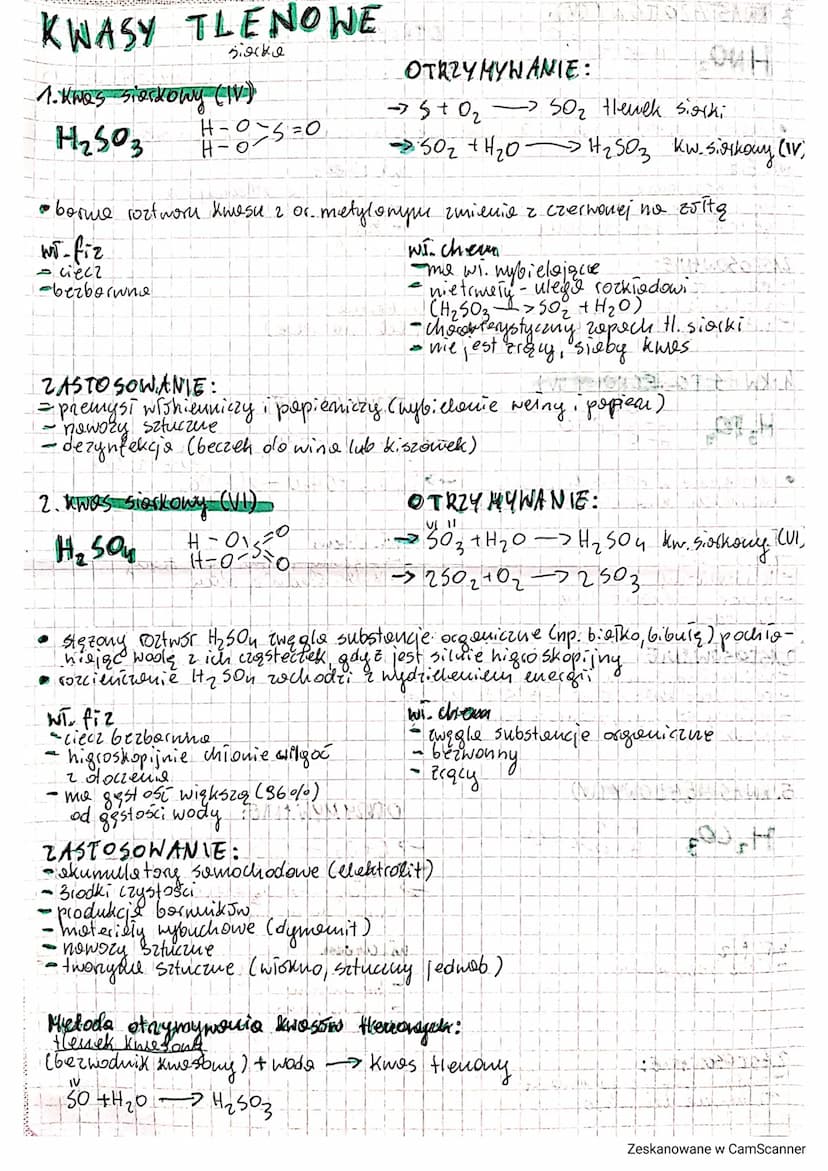 KWASY TLENOWE
siarka
1. Kwas siarkowy (IV)
H₂SO₃
H - O
H - O > S = O
OTRZYMYWANIE:
→ S + O₂ → SO₂ tlenek siarki
→ SO₂ + H₂O → H₂SO₃ kw. siarkowy (IV)
• barwa roztworu kwasu z or. metylowym zmienia z czerwonej na żółtą
wł. fiz
- ciecz
- bezbarwna
wł. chem
- ma wł. wybielające
- nietrwały - ulega rozkładowi
(H₂SO₃ → SO₂ + H₂O)
- charakterystyczny zapach tl. siarki
- nie jest żrący, słaby kwas
ZASTOSOWANIE:
- przemysł włókienniczy i papierniczy (wybielanie wełny i papieru)
- nawozy sztuczne
- dezynfekcja (beczek do wina lub kiszonek)
2. Kwas siarkowy (VI)
H₂SO₄
H - O
H - O > S = O
= O
OTRZYMYWANIE:
VI II
→ SO₃ + H₂O → H₂SO₄ kw. siarkowy (VI)
→ 2SO₂ + O₂ → 2SO₃
• stężony roztwór H₂SO₄ zwęgla substancje organiczne (np. białko, bibułę) pochła-
niając wodę z ich cząsteczek, gdyż jest silnie higroskopijny
• rozcieńczanie H₂SO₄ zachodzi z wydzieleniem energii
wł. fiz
- ciecz bezbarwna
- higroskopijnie chłonie wilgoć
z otoczenia
- ma gęstość większą (96%)
od gęstości wody
wł. chem
- zwęgla substancje organiczne
- bezwonny
- żrący
ZASTOSOWANIE:
- akumulatory samochodowe (elektrolit)
- środki czystości
- produkcja barwników
- materiały wybuchowe (dynamit)
- nawozy sztuczne
- tworzywa sztuczne (włókno, sztuczny jedwab)
Metoda otrzymywania kwasów tlenowych:
tlenek kwasowy
(bezwodnik kwasowy) + woda → kwas tlenowy
IV
SO + H₂O → H₂SO₃
Zeskanowane w CamScanner